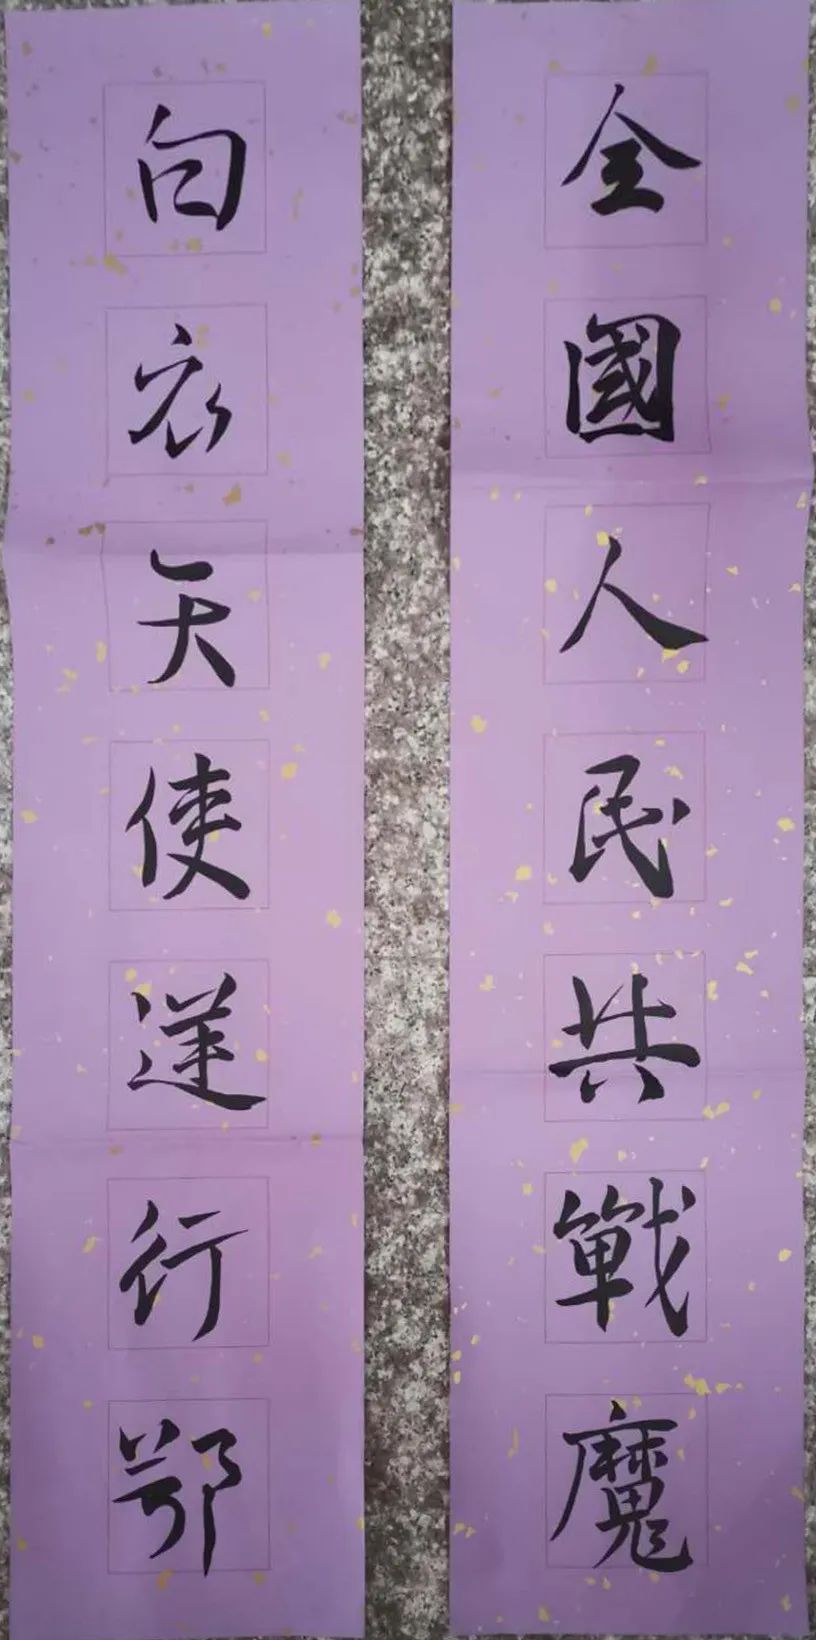 全國人民共戰魔
白衣天使逆行鄂